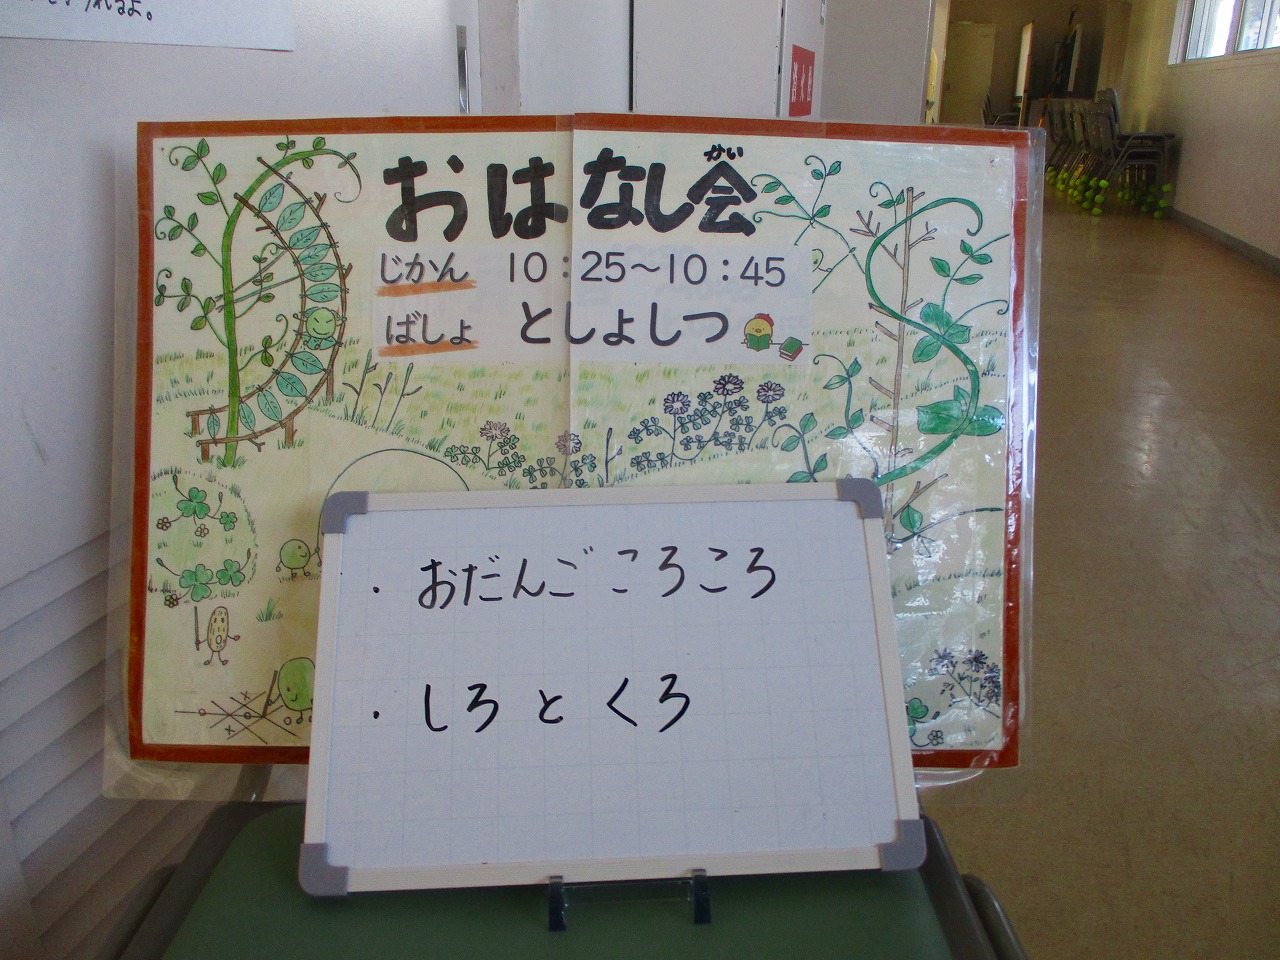 れるよ。
かい
おはなし会
じかん 10:25～10:45
ばしょ としょしつ
・おだんごころころ
・しろとくろ